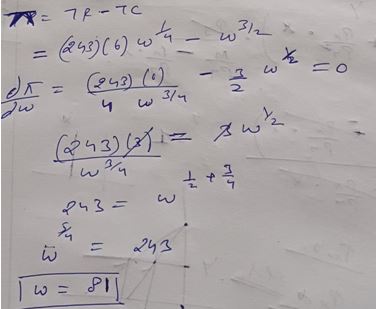 π = TR - TC
= (243)(6) w^{1/4} - w^{3/2}
dπ/dw = (243)(6)/(4 w^{3/4}) - 3/2 w^{1/2} = 0
(243)(3)/w^{3/4} = 3 w^{1/2}
243 = w^{1/2 + 3/4}
w^{5/4} = 243
w = 81